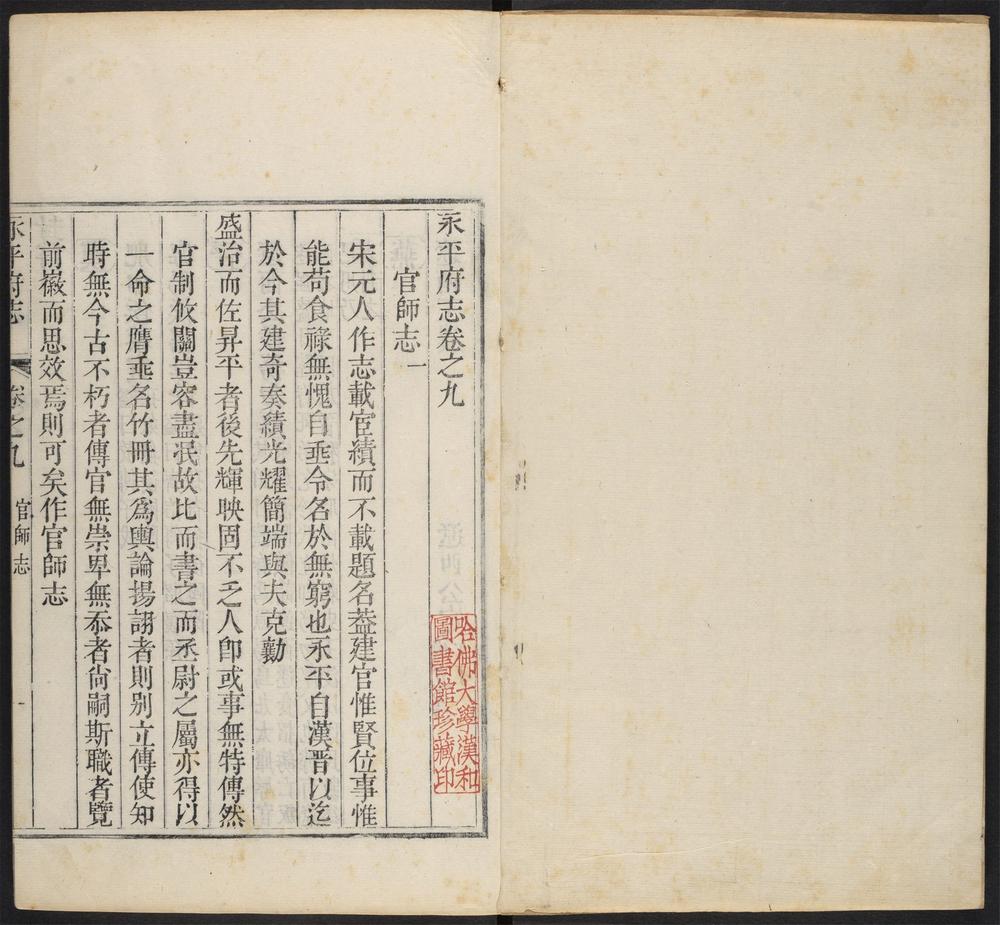 永平府志卷之九
官師志一
宋元人作志載宦績而不載題名葢建官惟賢位事惟
能苟食祿無愧自垂令名於無窮也永平自漢晋以迄
於今其建奇奏績光耀簡端與夫克勷
盛治而佐昇平者後先輝映固不乏人卽或事無特傳然
官制攸關豈容盡泯故比而書之而丞尉之屬亦得以
一命之膺垂名竹冊其爲輿論揚詡者則别立傳使知
時無今古不朽者傳官無崇卑無忝者尚嗣斯職者覽
前徽而思效焉則可矣作官師志
永平府志
卷之九
官師志
哈佛大學漢和
圖書館珍藏印